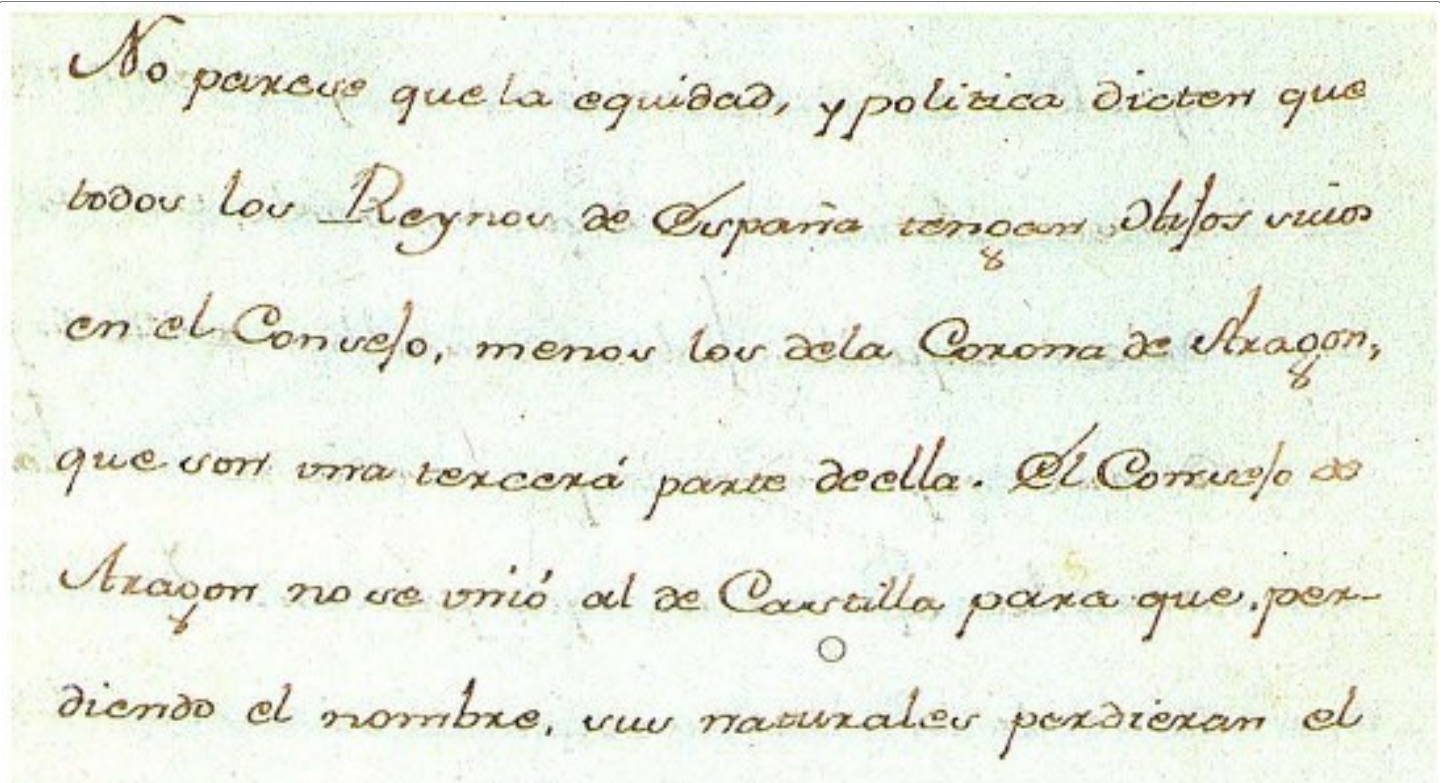 No parece que la equidad, y politica dicten que
todos los Reynos de España tengan Hijos suios
en el Consejo, menos los dela Corona de Aragon,
que son vna tercerá parte deella. El Consejo de
Aragon no se vnió al de Castilla para que, per-
diendo el nombre, sus naturales perdieran el